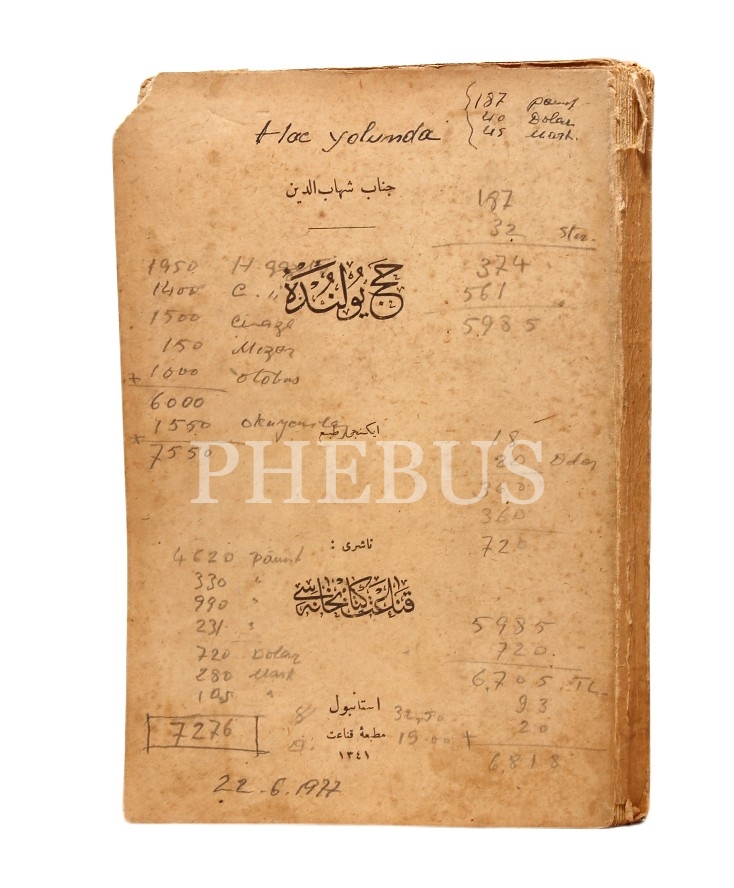 187 pount
40 Dolar
45 Mark.
Hac yolunda
جناب شهاب الدين
187
32 Ster.
374
561
5985
حج يولنده
1950 H.
1400 C. "
1500
150
+ 1000 otobüs
6000
1550
+
7550
ايكنجى طبع
18
20 Dolar
360
360
720
PHEBUS
ناشرى :
قناعت كتابخانه سى
4620 pount
330 "
990 "
231 "
720 Dolar
280 Mark
105 "
7276
5985
720
6705 TL.
93
20
6.818
32,50
19.00 +
استانبول
مطبعهٔ قناعت
١٣٤١
22.6.1977